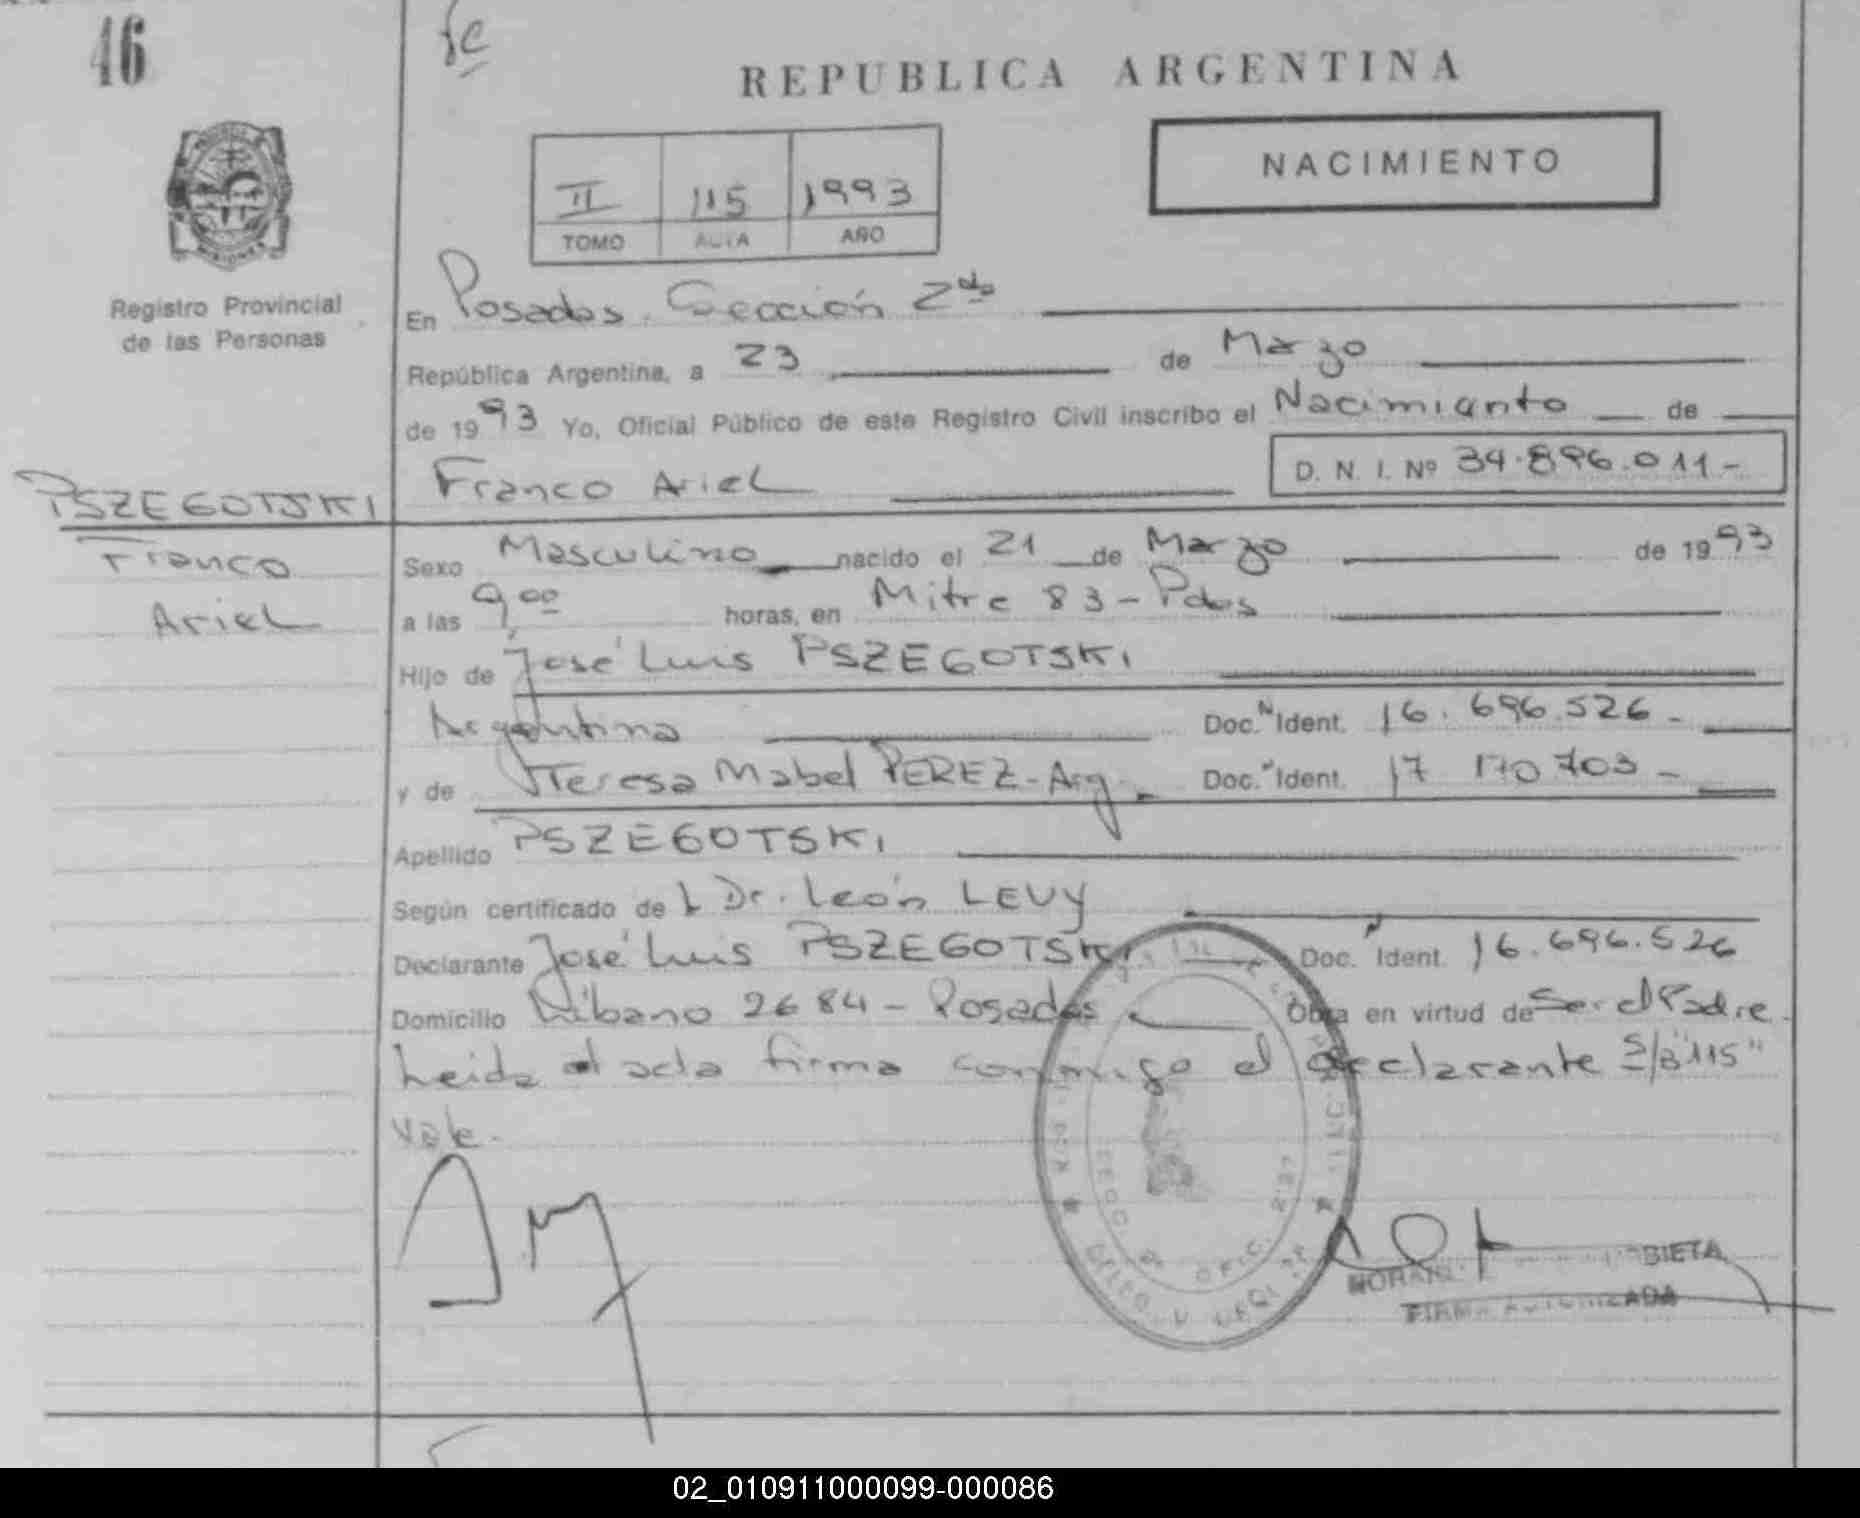 46
REPUBLICA ARGENTINA
NACIMIENTO
II 115 1993
TOMO ACTA AÑO
MISIONES
Registro Provincial
de las Personas
En Posadas. Sección 2da
República Argentina, a 23 de Marzo
de 1993 Yo, Oficial Público de este Registro Civil inscribo el Nacimiento de
Franco Ariel D. N. I. Nº 34.896.011-
PSZEGOTSKI
Franco
Ariel
Sexo Masculino nacido el 21 de Marzo de 1993
a las 9,00 horas, en Mitre 83 - Pdas
Hijo de José Luis PSZEGOTSKI
Argentina Doc. N Ident. 16.696.526-
y de Teresa Mabel PEREZ - Arg. Doc. Ident. 17 170 703-
Apellido PSZEGOTSKI
Según certificado de l Dr. León LEVY
Declarante José Luis PSZEGOTSKI Doc. Ident. 16.696.526
Domicilio Líbano 2684 - Posadas Obra en virtud de Ser el Padre.
Leida el acta firma conmigo el declarante S/B "115"
Vale.
SECC. OFIC.
BIETA
FIRMA AUTORIZADA
02_010911000099-000086